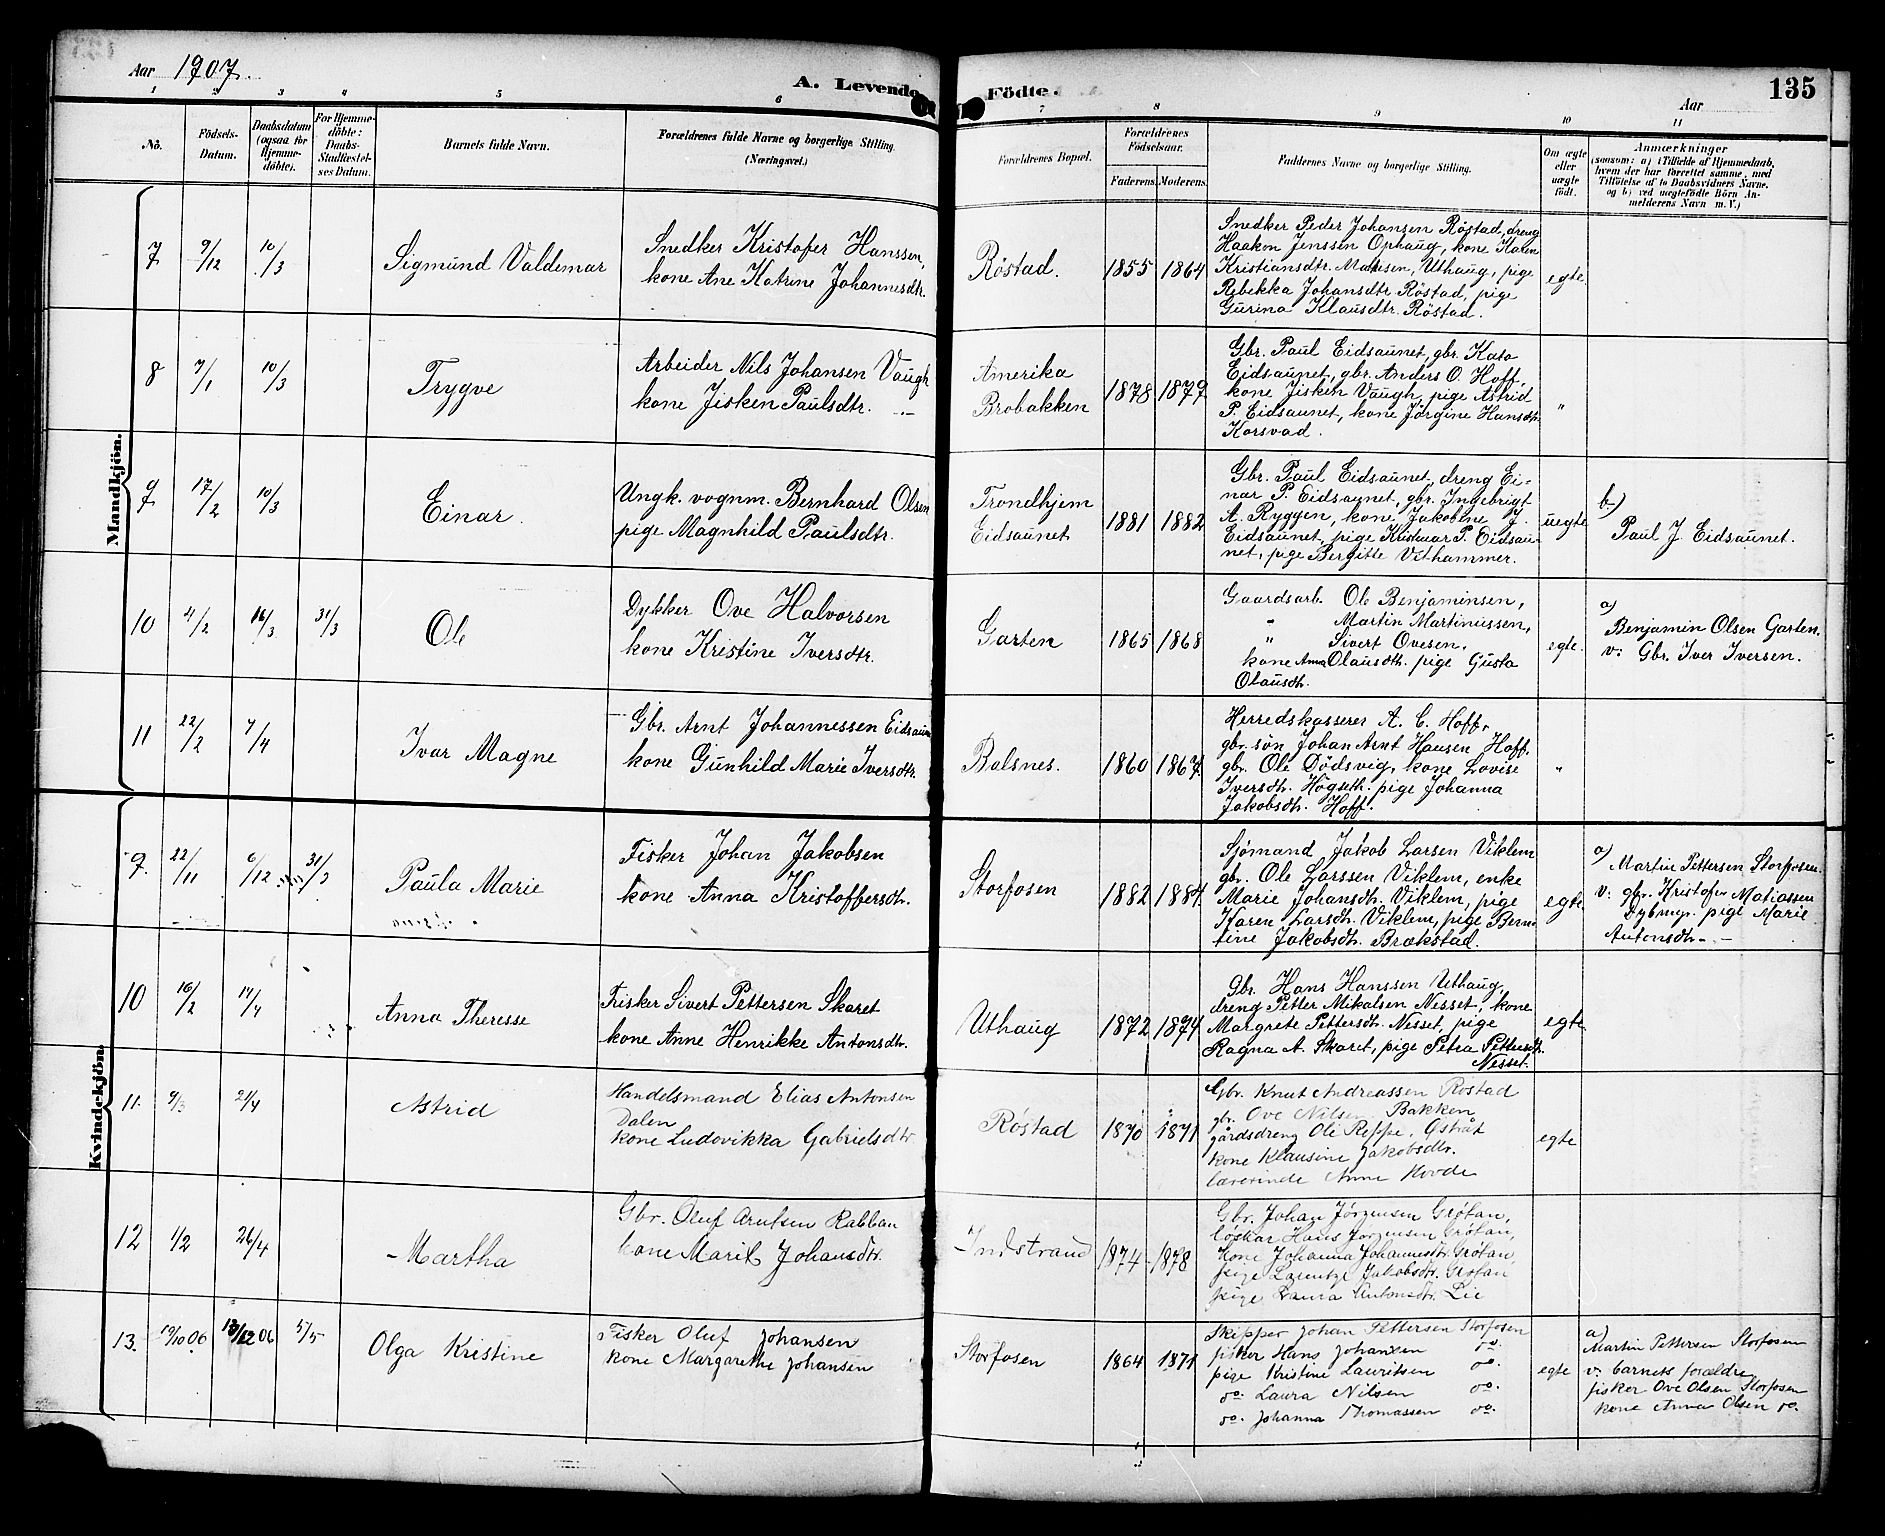 Aar 1907.
A. Levende Födte.
135
Aar
1 2 3 4 5 6 7 8 9 10 11
No.
Födsels-Datum.
Daabsdatum (ogsaa for Hjemmedöbte).
For Hjemmedöbte: Daabs-Stadfæstelses Datum.
Barnets fulde Navn.
Forældrenes fulde Navne og borgerlige Stilling. (Næringsvei.)
Forældrenes Bopæl.
Forældrenes Födselsaar.
Faderens. Moderens.
Faddernes Navne og borgerlige Stilling.
Om ægte eller uægte födt.
Anmærkninger
(saasom: a) i Tilfælde af Hjemmedaab,
hvem der har forrettet samme, med
Tilföielse af to Daabsvidners Navne,
og b) ved uægtefödte Börn Anmelderens Navn m. V.)
Mandkjön.
7 9/12 10/3 Sigmund Valdemar
Snedker Kristofer Hanssen,
kone Ane Katrine Johannesdtr.
Röstad. 1855 1864
Snedker Peder Johansen Röstad, dreng
Haakon Jenssen Ophaug, kone Karen
Kristiansdtr. Matisen, Uthaug, pige
Rebekka Johansdtr Röstad, pige
Gurina Klausdtr. Röstad.
egte.
8 7/1 10/3 Trygve
Arbeider Nils Johansen Vaugh
kone Jisken Paulsdtr. -"-
Amerika
Brobakken
1878 1879
Gbr. Paul Eidsaunet, gbr. Kato
Eidsaunet, gbr. Anders O. Hoff,
kone Jisken Vaugh, pige Astrid
P. Eidsaunet, kone Jörgine Hansdtr.
Korsvad.
"
9 17/2 10/3 Einar.
Ungk. vognm. Bernhard Olsen
pige Magnhild Paulsdtr.
Trondhjem
Eidsaunet
1881 1882
Gbr. Paul Eidsaunet, dreng Ei-
nar P. Eidsaunet, gbr. Ingebrigt
A. Ryggen, kone Jakobine J.
Eidsaunet, pige P. Eidsau-
net, pige Bergitte Vithammer.
uegte
b.)
Paul J. Eidsaunet.
10 4/2 16/3 31/3 Ole
Dykker Ove Halvorsen
kone Kristine Iversdtr.
Garten 1865 1868
Gaardsarb. Ole Benjaminsen,
" Martin Martinussen,
" Sivert Ovesen,
kone Anna Olausdtr. pige Gusta
Olausdtr.
egte.
a)
Benjamin Olsen Garten.
v: Gbr. Iver Iversen.
11 22/2 7/4 Ivar Magne
Gbr. Arnt Johannessen Eidsaun
kone Gunhild Marie Iversdtr.
Balsnes. 1860 1867
Herredskasserer A. C. Hoff,
gbr. sön Johan Arnt Hansen Hoff.
gbr. Ole Dödsvig, kone Lovise
Iversdtr. Högseth. pige Johanna
Jakobsdtr. Hoff.
"
Kvindekjön.
9. 22/11 6/12 31/3 Paula Marie
Fisker Johan Jakobsen
kone Anna Kristoffersdtr.
Storfosen 1882 1884
Sjömand Jakob Larsen Viklem
gbr. Ole Larssen Viklem, enke
Marie Johansdtr. Viklem, pige
Karen Larsdtr. Viklem, pige Bern-
tine Jakobsdtr. Brækstad.
egte.
a)
Martin Pettersen Storfosen.
v. gbr. Kristofer Matiassen
pige Marie
Antonsdtr -"-
10 16/2 14/4 Anna Theresse
Fisker Sivert Pettersen Skaret
kone Anne Henrikke Antonsdtr.
Uthaug 1872 1874
Gbr. Hans Hanssen Uthaug,
dreng Petter Mikalsen Nesset, kone
Margrete Pettersdtr. Nesset, pige
Ragna A. Skaret, pige Petra Pettersdtr.
Nesset.
egte
11. 9/3 21/4 Astrid
Handelsmand Elias Antonsen
Dalen
kone Ludovikka Gabrielsdtr.
Röstad 1870 1871
Gbr. Knut Andreassen Röstad
gbr. Ove Nilsen Bakken
gårdsdreng Ole Reppe, Östråt
kone Klausine Jakobsdtr.
lærerinde Anne Hovde
egte
12 1/2 26/4 Martha
Gbr. Oluf Arntsen Rabban
kone Marit Johansdtr.
Indstrand 1874 1878
Gbr. Johan Jörgensen Grötan,
löskar Hans Jörgensen Grötan,
Kone Johanna Johannesdtr. Grötan
pige Larentze Jakobsdtr. Grötan
pige Laura Antonsdtr. Lie
13. 19/10 06 13/12 06 5/5 Olga Kristine
Fisker Oluf Johansen
kone Margarethe Johansen
Storfosen 1864 1871
Skipper Johan Pettersen Storfosen
fisker Hans Johansen do.
pige Kristine Lauritsen do.
do. Laura Nilsen do.
do. Johanna Thomassen do.
egte
a)
Martin Pettersen Storfosen
v. barnets forældre
fisker Ove Olsen Storfosen
kone Anna Olsen do.